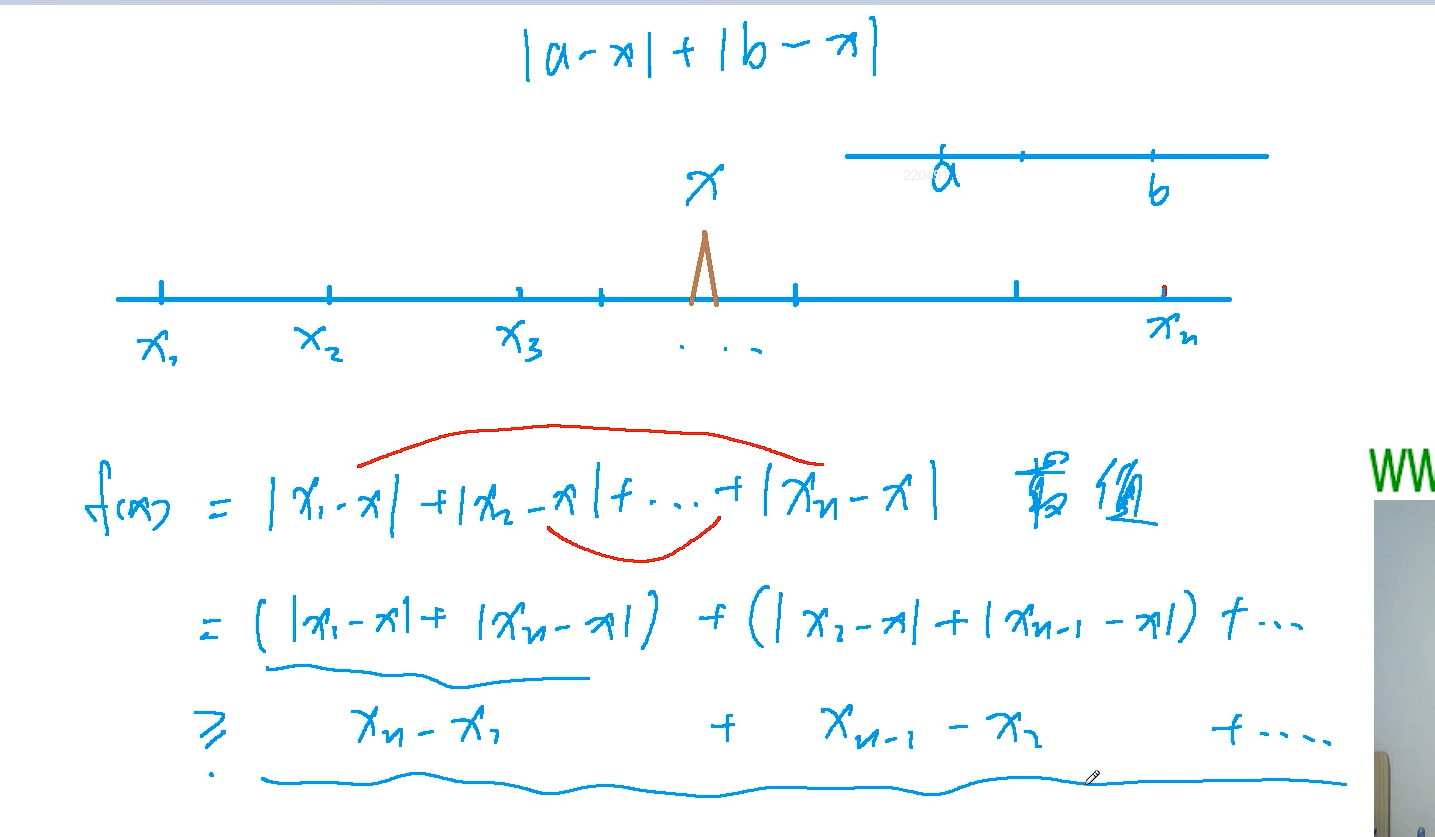 |a-x|+|b-x|
x
a b
x₁ x₂ x₃ ... xₙ
f(x) = |x₁-x|+|x₂-x|+...+|xₙ-x| 最值
= (|x₁-x|+|xₙ-x|) + (|x₂-x|+|xₙ₋₁-x|)+...
≥ xₙ-x₁ + xₙ₋₁-x₂ +....
WW